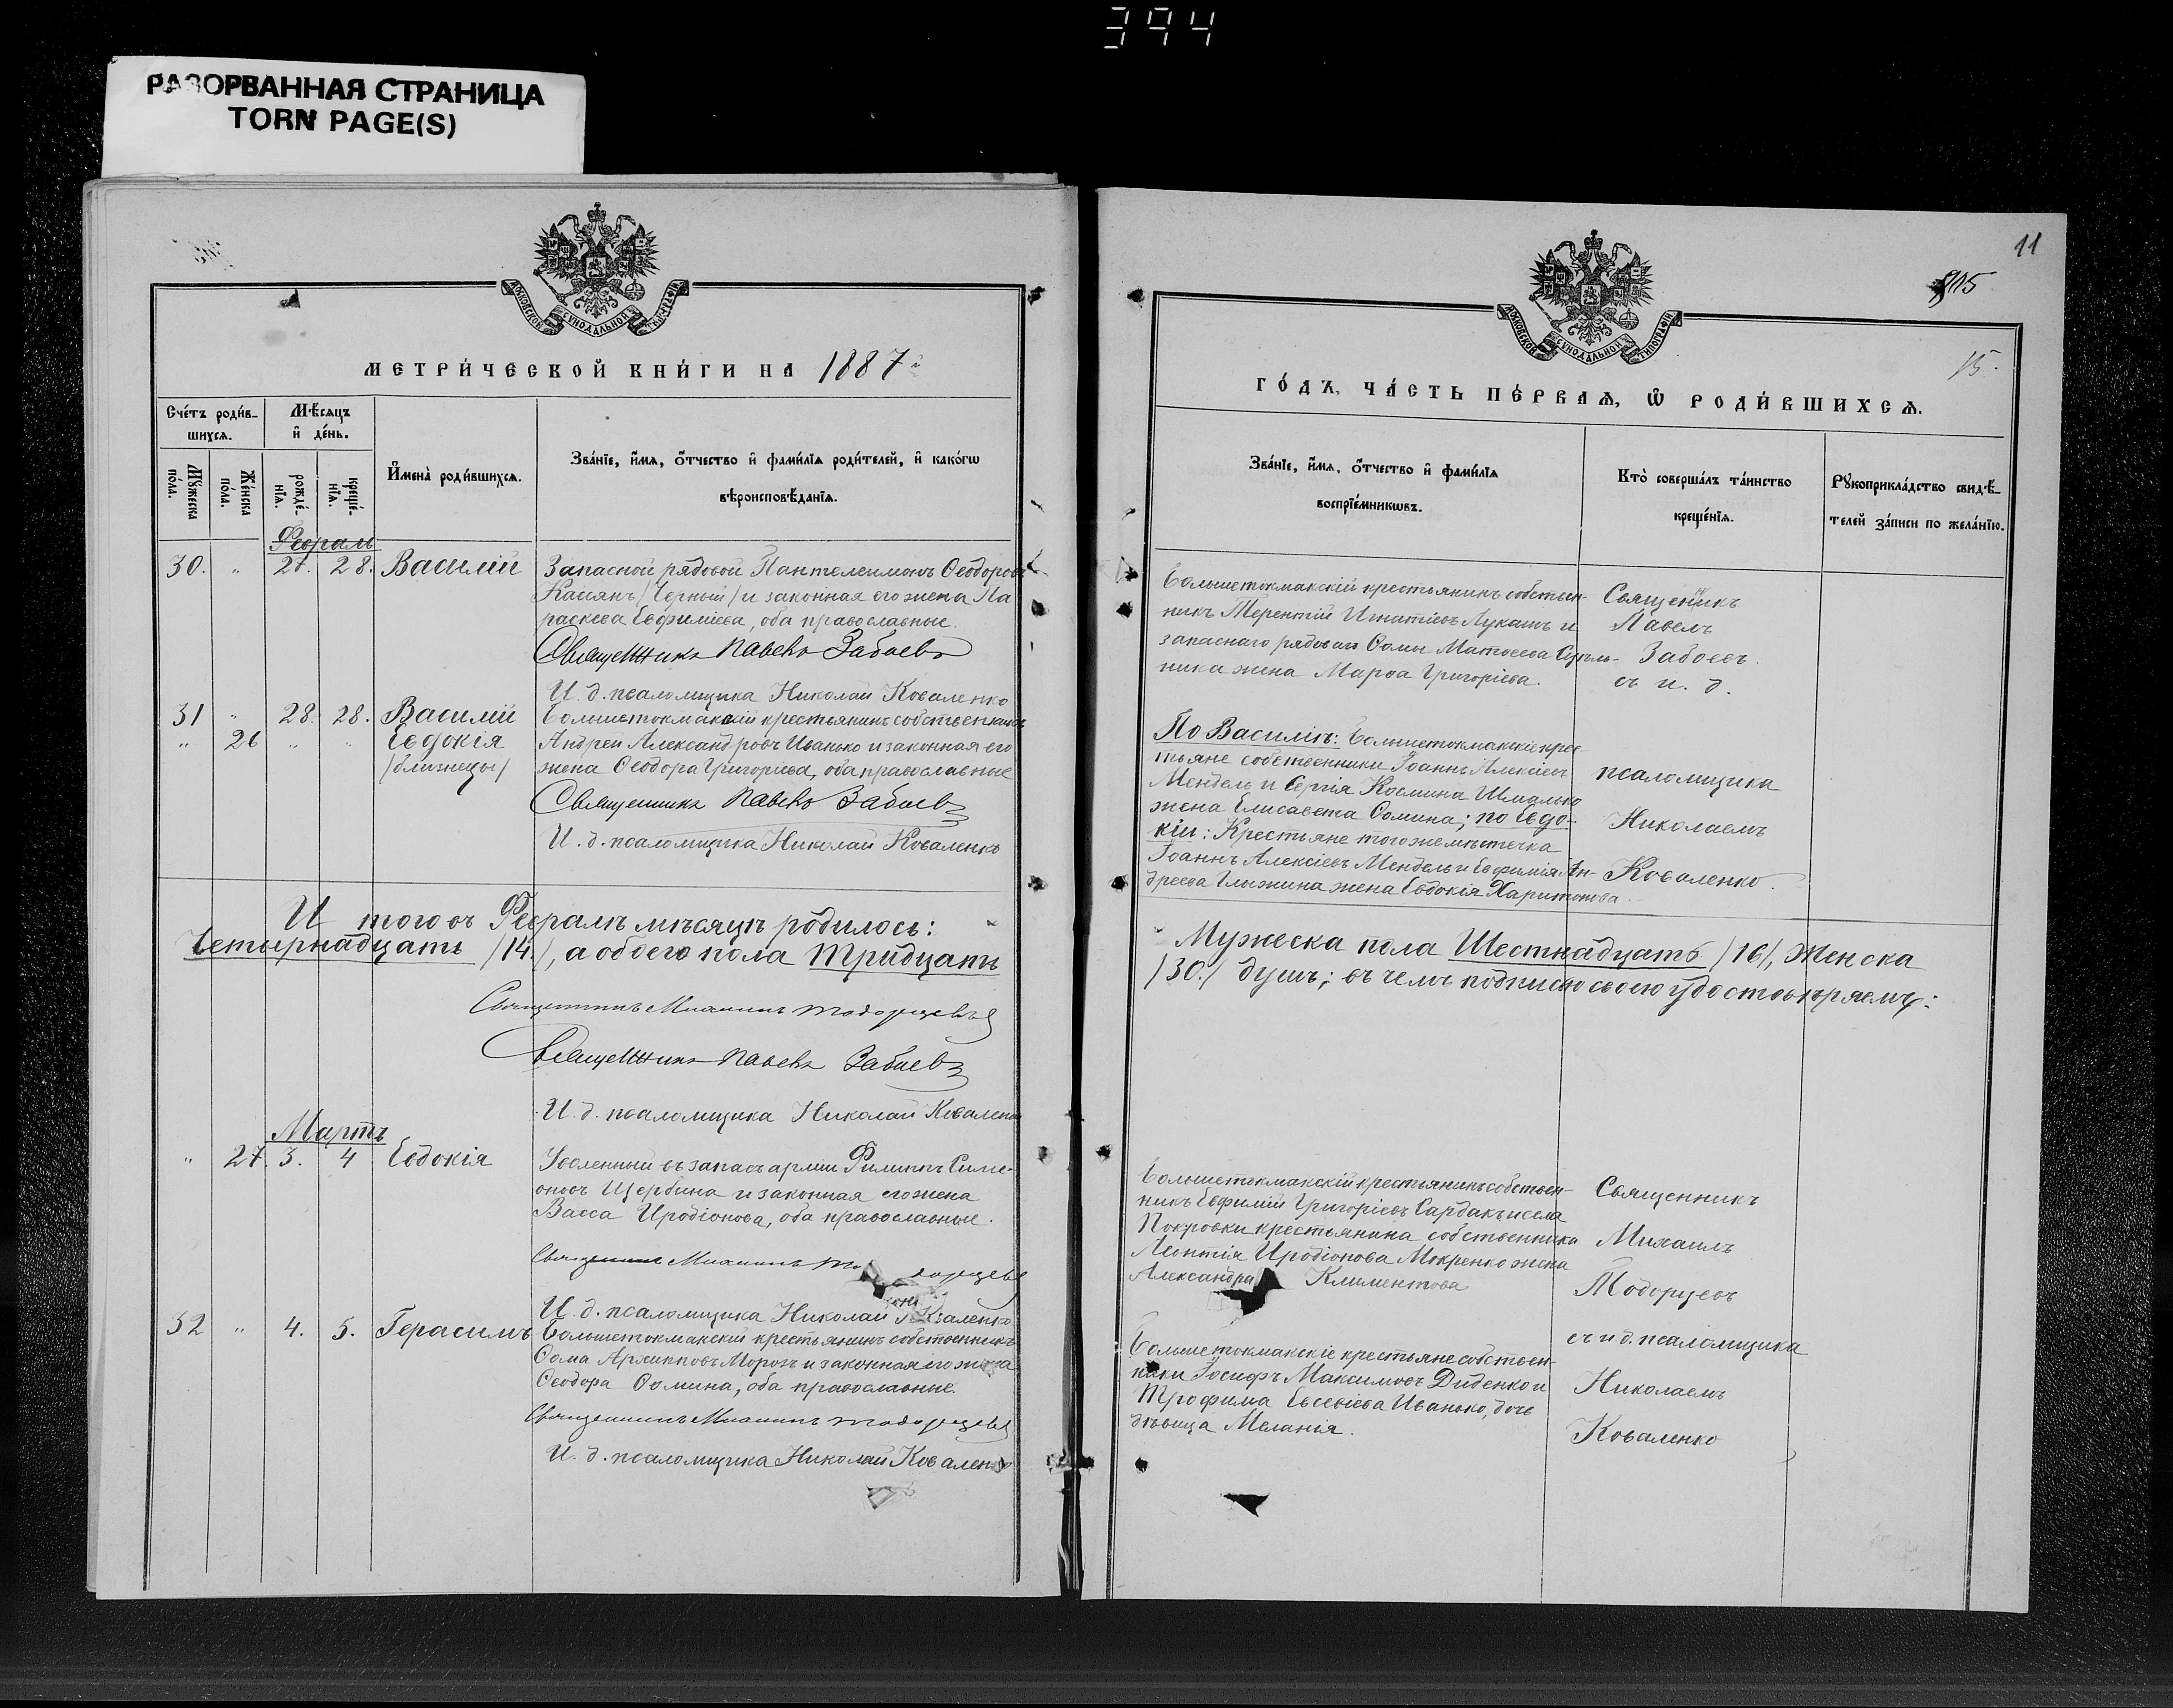 394
РАЗОРВАННАЯ СТРАНИЦА
TORN PAGE(S)
МОСКОВСКОЙ СѴНОДАЛЬНОЙ
МЕТРИ́ЧЕСКОЙ КНИ́ГИ НА 1887 й
Сче́тъ роди́в-
шихсѧ.
Мѣ́сѧцъ
и҆ де́нь.
Мꙋ́жеска
по́ла.
Же́нска
по́ла.
рожде́-
нїѧ.
креще́-
нїѧ.
И҆мена̀ роди́вшихсѧ.
Зва́нїе, и҆́мѧ, ѻ҆́тчество и҆ фами́лїѧ роди́телей, и҆ како́гѡ
вѣроисповѣ́данїѧ.
Февраль
30. " 27. 28. Василій
Запасной рядовой Пантелеимонъ Ѳеодоровъ
Касьянъ /Черный/ и законная его жена Па
раскева Евфиміева, оба православные.
Священникъ Павелъ Забаевъ
И. д. псаломщика Николай Коваленко
31 " 28. 28. Василій
Большетокмакскій крестьянинъ собственникъ
" 26 " " Евдокія
Андрей Александровъ Иванько и законная его
/близнецы/
жена Ѳеодора Григоріева, оба православные
Священникъ Павелъ Забаевъ
И. д. псаломщика Николай Коваленко
И того въ Февралѣ мѣсяцѣ родилось:
Четырнадцать /14./, а обоего пола Тридцать
Священникъ Михаилъ Тодорцевъ
Священникъ Павелъ Забаевъ
И. д. псаломщика Николай Коваленко
Мартъ
" 27. 3. 4 Евдокія
Уволенный въ запасъ арміи Филиппъ Симе-
оновъ Щербина и законная его жена
Васса Иродіонова, оба православные.
Священникъ Михаилъ Тодорцевъ
И. д. псаломщика Николай Коваленко
32 " 4. 5. Герасимъ
Большетокмакскій крестьянинъ собственникъ
Ѳома Архипповъ Морозъ и законная его жена
Ѳеодора Ѳомина, оба православные.
Священникъ Михаилъ Тодорцевъ
И. д. псаломщика Николай Коваленко
11
15.
МОСКОВСКОЙ СѴНОДАЛЬНОЙ ТИПОГРАФІИ
ГО́ДЪ, ЧА́СТЬ ПЕ́РВАѦ, Ѡ҆ РОДИ́ВШИХСѦ.
Зва́нїе, и҆́мѧ, ѻ҆́тчество и҆ фами́лїѧ
воспрїе́мникѡвъ.
Кто̀ соверша́лъ та́инство
креще́нїѧ.
Рꙋкоприкла́дство свидѣ́-
телей за́писи по жела́нїю.
Большетокмакскій крестьянинъ собствен-
никъ Терентій Игнатіевъ Лукашъ и
запаснаго рядоваго Ѳомы Матѳеева
ника жена Марѳа Григоріева.
Священникъ
Павелъ
Забоевъ.
съ и. д.
По Василіѣ: Большетокмакскіе крес
тьяне собственники Іоаннъ Алексіевъ
Мендель и Сергія Косьмина Шмалько
жена Елисавета Ѳомина; по Евдо-
кіи: Крестьяне того же мѣстечка
Іоаннъ Алексіевъ Мендель и Евфимія Ан-
дреева Глыжина жена Евдокія Харитонова.
псаломщика
Николаемъ
Коваленко.
Мужеска пола Шестнадцать /16/, Женска
/30./ душъ; въ чемъ подписью своею удостовѣряемъ:
Большетокмакскій крестьянинъ собствен-
никъ Евфимій Григоріевъ Сардакъ и села
Покровки крестьянина собственника
Леонтія Иродіонова Мокренко жена
Александра Климентова
Священникъ
Михаилъ
Тодорцевъ
Большетокмакскіе крестьяне собствен-
ники Іосифъ Максимовъ Диденко и
Трофима Евсевіева Иванько, дочь
дѣвица Меланія.
съ и д. псаломщика
Николаемъ
Коваленко